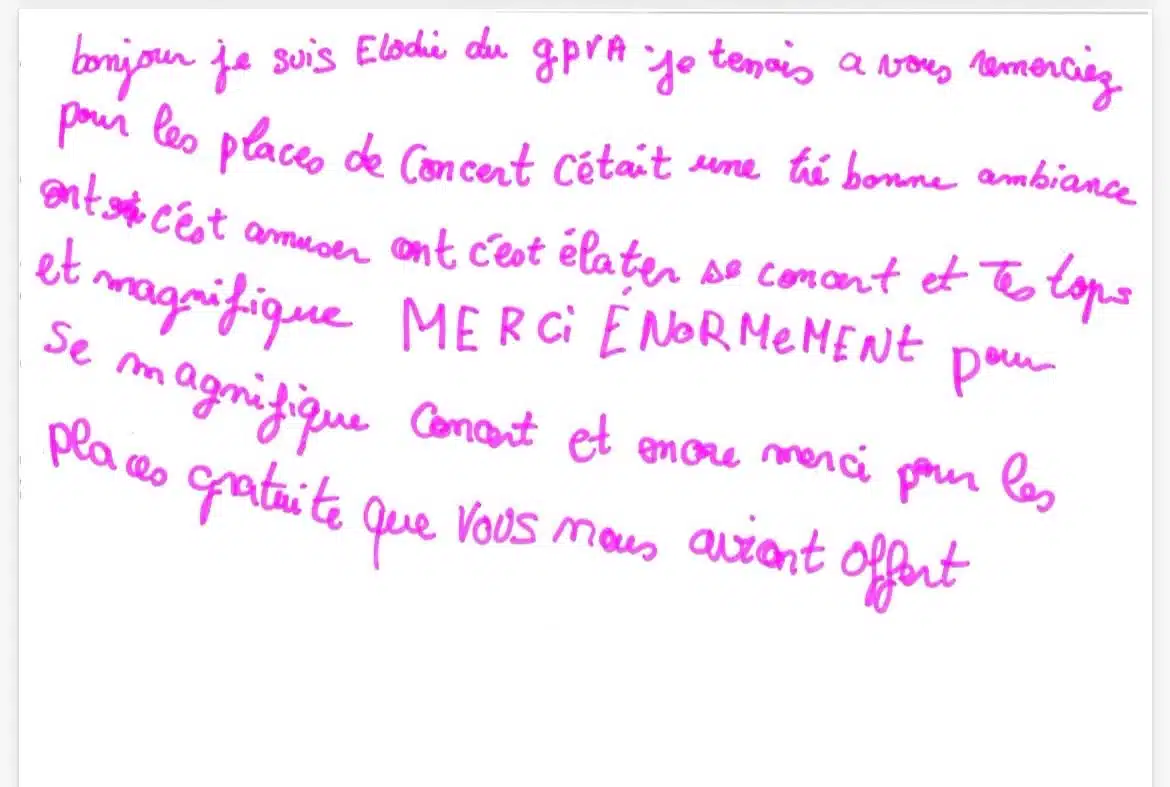 bonjour je suis Elodie du gpvA je tenais a vous remerciez
pour les places de Concert C'était une tré bonne ambiance
ont c'est amuser ont c'est élater se concert et Tes tops
et magnifique MERCi ÉNoRMeMENt pour
Se magnifique Concert et encore merci pour les
places gratuite que VOUS nous aviont offert